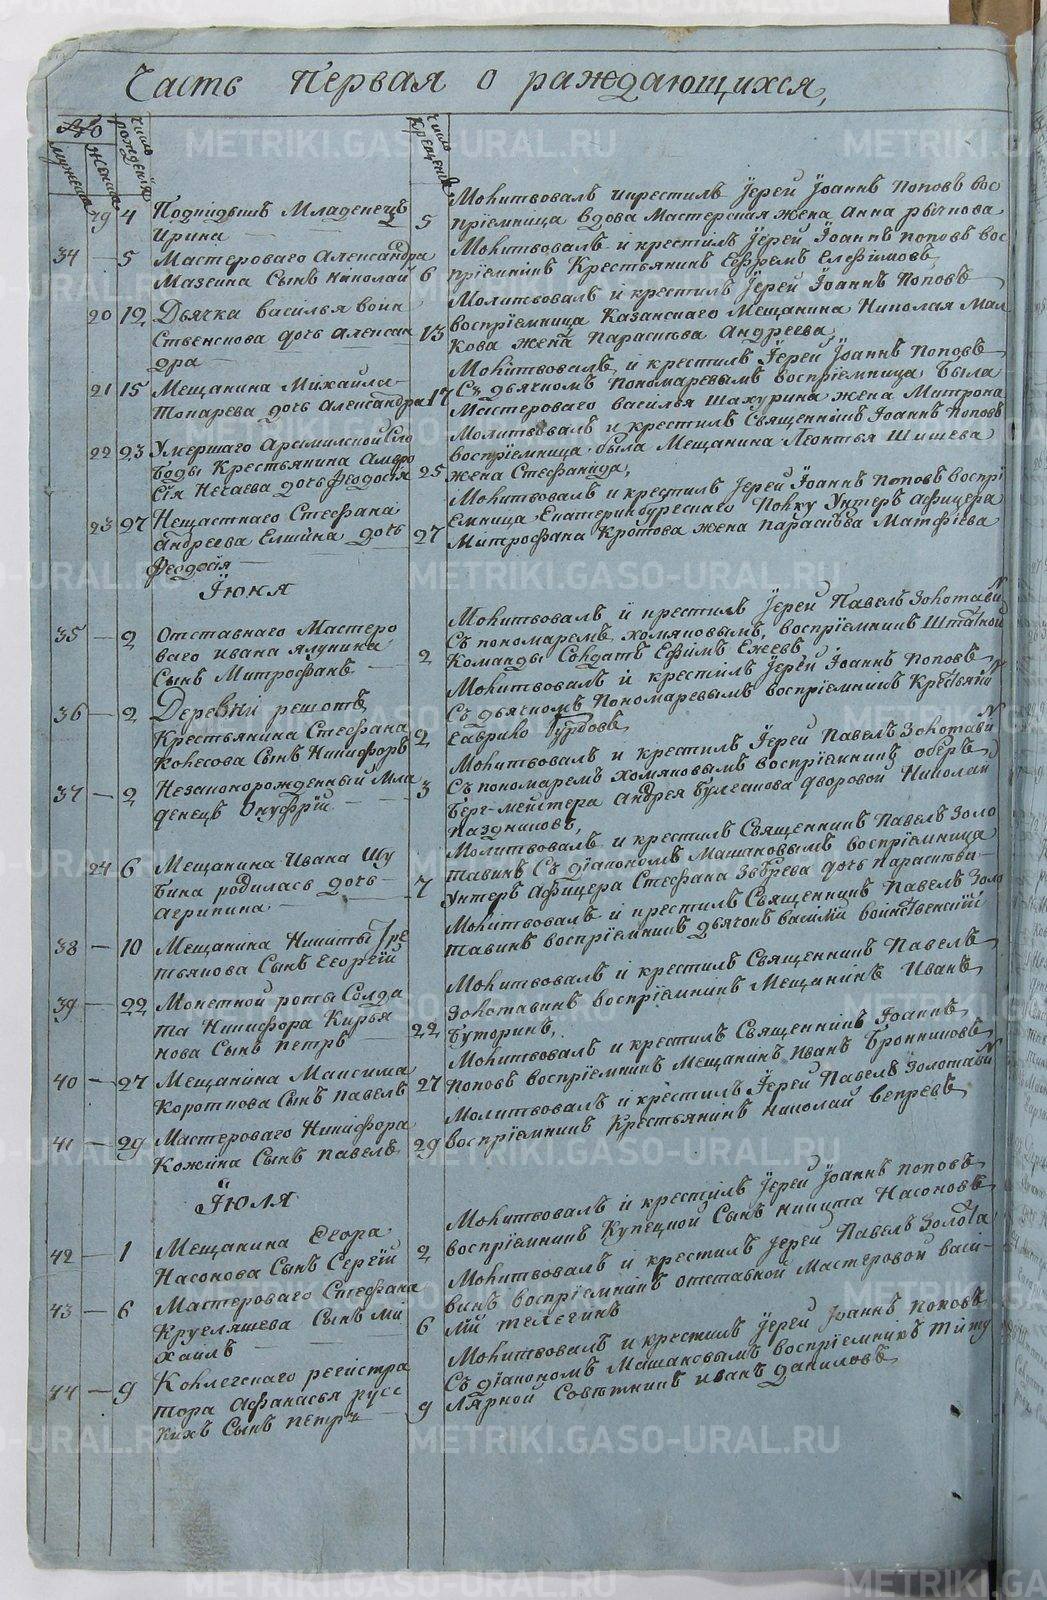 Часть Первая о раждающихся,
№
мужеска
женска
число рождения
число крещения
19 4 Подкидышъ Младенецъ
Ирина
5 Молитвовалъ и крестилъ Їерей Їоаннъ Поповъ вос
прїемница вдова Мастерская жена Анна
34 — 5 Мастероваго Александра
Мазеина Сынъ Николай
6 Молитвовалъ и крестилъ Їерей Їоаннъ Поповъ вос
прїемникъ Крестьянинъ Ефремъ Елефимовъ,
20 12 Дьячка Василья Воин
ственскова дочь Алексан
дра
13 Молитвовалъ и крестилъ Їерей Їоаннъ Поповъ
воспрїемница Казанскаго Мещанина Николая Мал
кова жена Парасковья Андреева,
21 15 Мещанина Михаила
Токарева дочь Александра
17 Молитвовалъ и крестилъ Їерей Їоаннъ Поповъ
Съ дьячкомъ Пономаревымъ воспрїемница была
Мастероваго Василья Шахурина жена Матрона
22 23 Умершаго Арамильской Сло
боды Крестьянина Амвро
сїя Нечаева дочь Феодосїя
25 Молитвовалъ и крестилъ Священникъ Їоаннъ Поповъ
воспрїемница была Мещанина Леонтья Шишева
жена Стефанида,
23 27 Нещастнаго Стефана
Андреева Елшина дочь
Феодосїя
27 Молитвовалъ и крестилъ Їерей Їоаннъ Поповъ воспрї
емница Екатеринбургскаго Полку Унтеръ Афицера
Митрофана Кротова жена Парасковья Матфїева
Їюня
35 — 2 Отставнаго Мастеро
ваго Ивана Ялунина
Сынъ Митрофанъ
2 Молитвовалъ й крестилъ Їерей Павелъ Золотавинъ
Съ пономаремъ Хомяковымъ, воспрїемникъ Штатной
Команды Солдатъ Ефимъ Ежевъ
36 — 2 Деревни решотъ
Крестьянина Стефана
Колесова Сынъ Никифоръ
2 Молитвовалъ и крестилъ Їерей Їоаннъ Поповъ
Съ дьячкомъ Пономаревымъ воспрїемникъ Крестьянинъ
Гаврило
37 — 2 Незаконорожденный Мла
денецъ Онуфрїй
3 Молитвовалъ и крестилъ Їерей Павелъ Золотавинъ
Съ пономаремъ Хомяковымъ воспрїемникъ оберъ
берг-мейстера Андрея Булгакова дворовой Николай
Паздниковъ,
24 6 Мещанина Ивана Шу
бина родилась дочь
Агрипина
7 Молитвовалъ и крестилъ Священникъ Павелъ Золо
тавинъ Съ дїакономъ Машановымъ воспрїемница
Унтеръ Афицера Стефана Зверева дочь Парасковья
38 — 10 Мещанина Никиты Тре
тьякова Сынъ Георгїй
Молитвовалъ и крестилъ Священникъ Павелъ Золо
тавинъ воспрїемникъ дьячокъ Василїй Воинственскїй
39 — 22 Монетной роты Солда
та Никифора Кирья
нова Сынъ Петръ
22 Молитвовалъ и крестилъ Священникъ Павелъ
Золотавинъ воспрїемникъ Мещанинъ Иванъ
Буторинъ,
40 — 27 Мещанина Максима
Короткова Сынъ Павелъ
27 Молитвовалъ и крестилъ Священникъ Їоаннъ
Поповъ воспрїемникъ Мещанинъ Иванъ Бронниковъ
41 — 29 Мастероваго Никифора
Кожина Сынъ Павелъ
29 Молитвовалъ и крестилъ Їерей Павелъ Золотавинъ
воспрїемникъ Крестьянинъ Николай Вепревъ
Їюля
42 — 1 Мещанина Егора
Насонова Сынъ Сергїй
2 Молитвовалъ и крестилъ Їерей Їоаннъ Поповъ
воспрїемникъ Купецкой Сынъ Никита Насоновъ
43 — 6 Мастероваго Стефана
Кругляшева Сынъ Ми
хаилъ
6 Молитвовалъ и крестилъ Їерей Павелъ Золота
винъ воспрїемникъ отставной Мастеровой Васи
лїй Телегинъ
44 — 9 Коллегскаго регистра
тора Афанасья Русс
кихъ Сынъ Петръ
9 Молитвовалъ и крестилъ Їерей Їоаннъ Поповъ
Съ дїакономъ Машановымъ воспрїемникъ Титу
лярной Советникъ Иванъ Даниловъ
METRIKI.GASO-URAL.RU